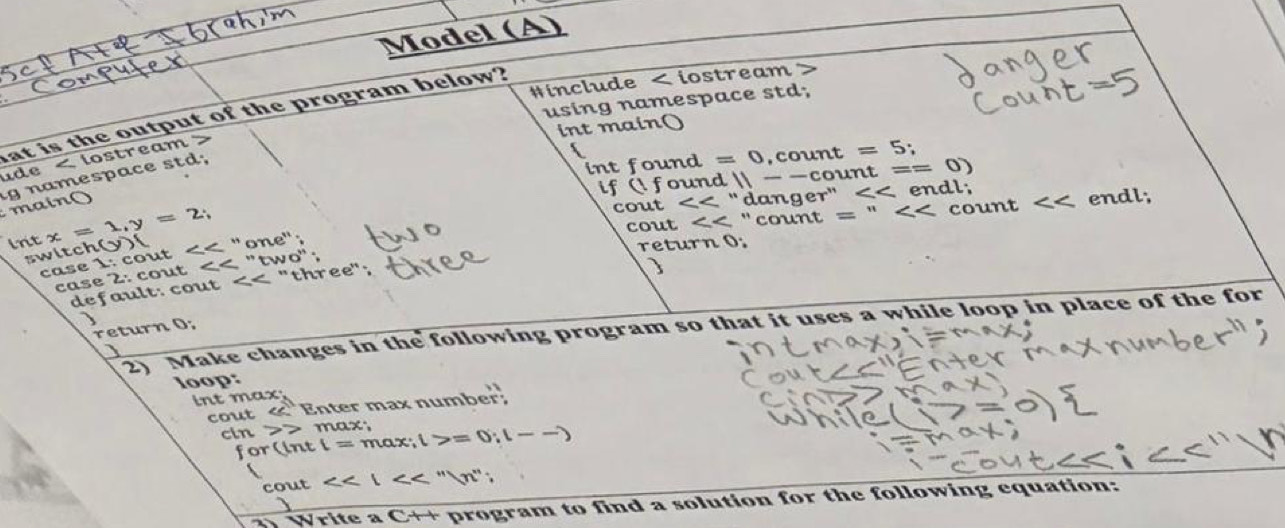 Ibrahim
Computer
Model (A)
at is the output of the program below?
ude < iostream >
g namespace std;
main()
int x = 1,y = 2;
switch(y){
case 1: cout << "one";
case 2: cout << "two";
default: cout << "three";
}
return 0;
}
two
three
#include < iostream >
using namespace std;
int main()
{
int found = 0,count = 5;
if (!found || --count == 0)
cout << "danger" << endl;
cout << "count = " << count << endl;
return 0;
}
danger
count=5
2) Make changes in the following program so that it uses a while loop in place of the for
loop:
int max;
cout << "Enter max number";
cin >> max;
for(int i = max;i >= 0;i --)
{
cout << i << "\n";
}
int max, i=max;
cout<<"Enter max number";
cin>> max;
while(i>=0){
i=max;
i--cout<<i<<"\n
3) Write a C++ program to find a solution for the following equation: